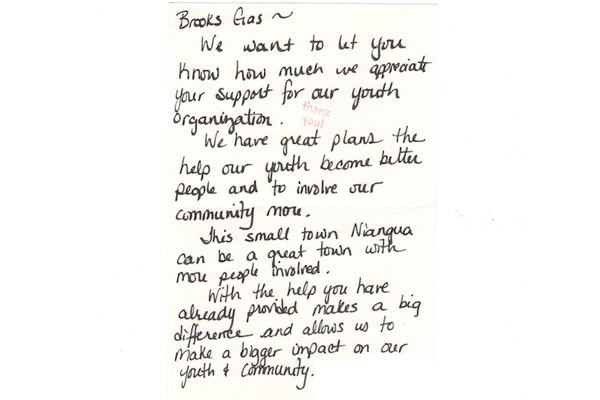 Brooks Gas ~
We want to let you
know how much we appreciate
your support for our youth
thank
you!
organization.
We have great plans the
help our youth become better
people and to involve our
community more.
This small town Niangua
can be a great town with
more people involved.
With the help you have
already provided makes a big
difference and allows us to
make a bigger impact on our
youth & community.